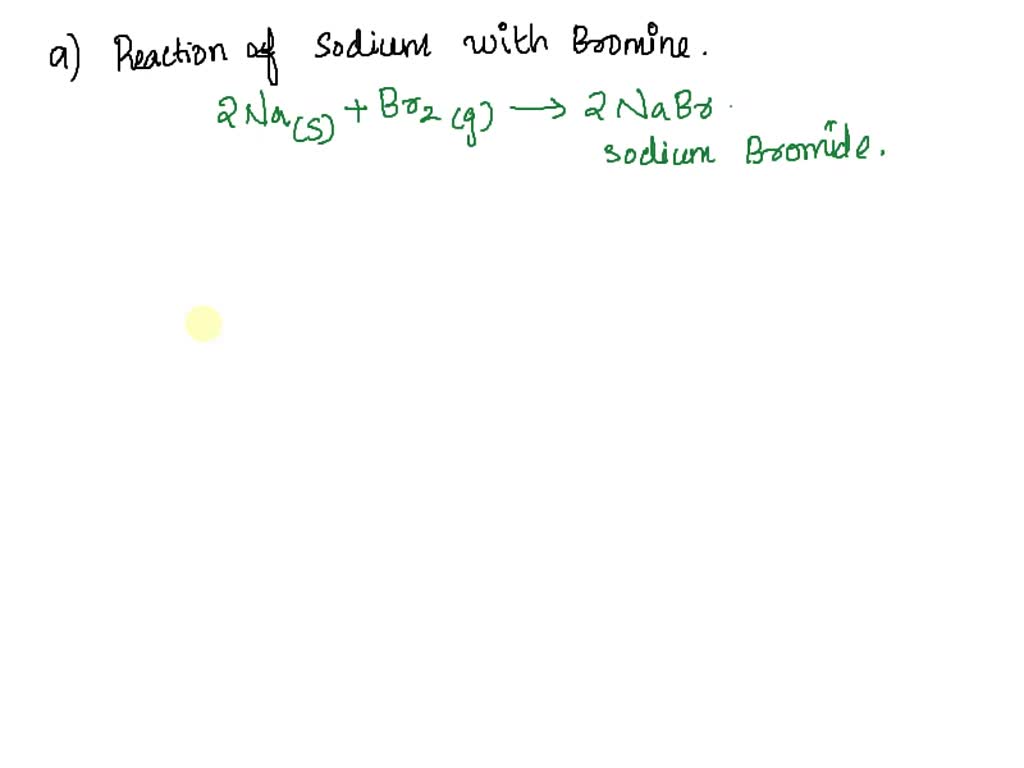 a) Reaction of Sodium with Bromine.
2Na(s) + Br2(g) → 2NaBr
sodium Bromide.